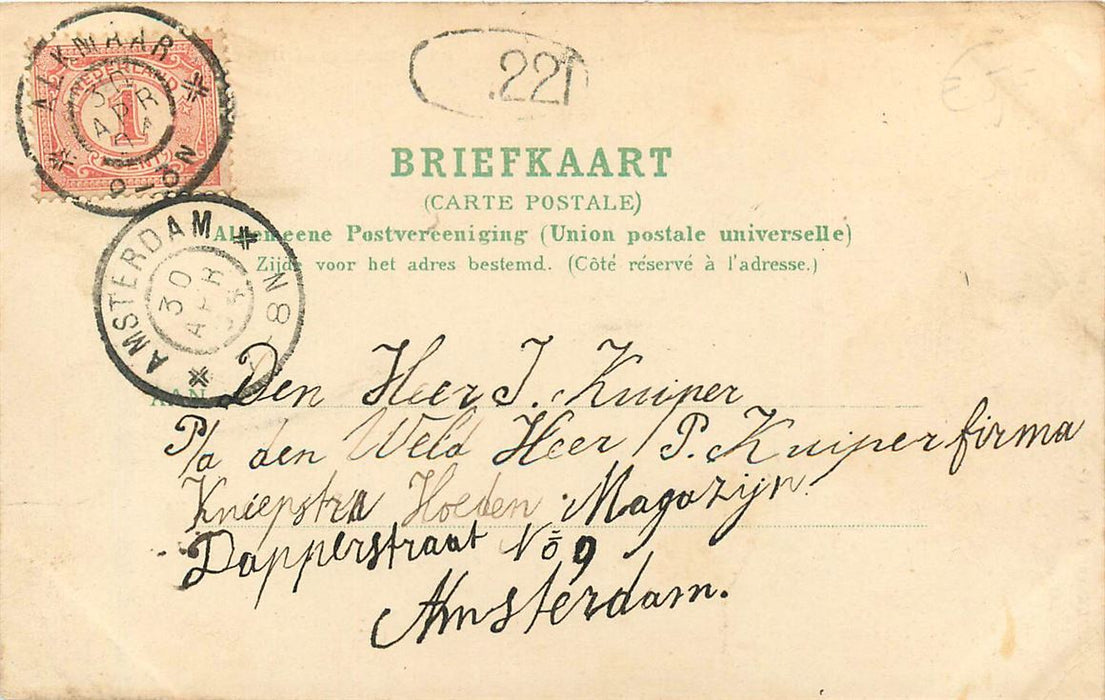 ALKMAAR
NEDERLAND
1
CENT
APR
221
BRIEFKAART
(CARTE POSTALE)
Algemeene Postvereeniging (Union postale universelle)
Zijde voor het adres bestemd. (Côté réservé à l'adresse.)
AMSTERDAM
30
APR
8
N
AAN
Den Heer J. Kuiper
P/a den Weld Heer P. Kuiper firma
Kniepstra Hoeden Magazijn
Dapperstraat No 9
Amsterdam.